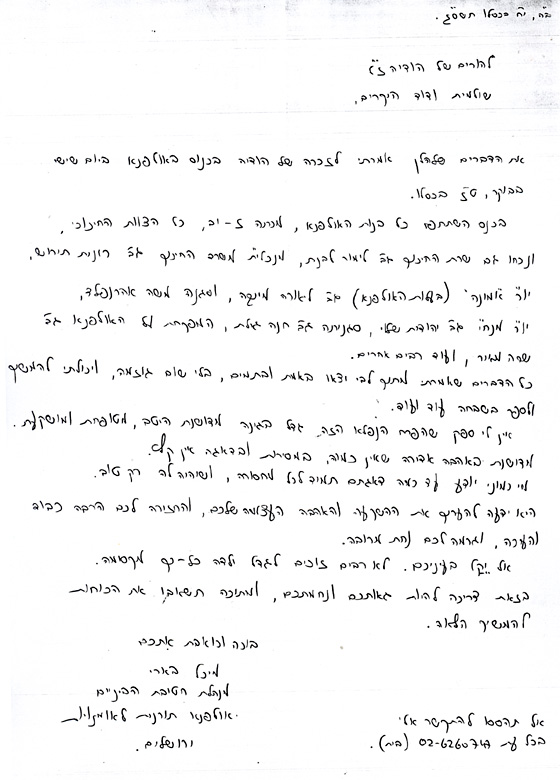 ב"ה, י"ח בכסלו תשס"ג.
להורים של הודיה ז"ל
שולמית ודוד היקרים,
את הדברים שלהלן אמרתי לזכרה של הודיה בכנס באולפנא ביום שישי
בבוקר, ט"ז בכסלו.
בכנס השתתפו כל בנות האולפנא, מכתה ז-יב, כל הצוות החינוכי,
ונכחו גם שרת החינוך גב' לימור לבנת, מנכ"לית משרד החינוך גב' רונית תירוש,
יו"ר "אמונה" (בעלות האולפנא) גב' ליאורה מינקה, וסגנה משה אהרנפלד,
יו"ר מנח"י גב' יהודית שלוי, סגניתה גב' חנה גילת, המפקחת על האולפנא גב'
שרה מאיר, ועוד רבים אחרים.
כל הדברים שאמרתי מתוך לבי יצאו באמת ובתמים, בלי שום גוזמה, ויכולתי להמשיך
ולספר בשבחה עוד ועוד.
אין לי ספק שהפרח הנפלא הזה גדל בגינה מדושנת היטב, מטופחת ומושקעת.
מדושנת באהבה אדירה שאין כמוה, במסירות ובדאגה אין קץ.
מי כמוני יודע עד כמה דאגתם תמיד לכל מחסורה, ושיהיה לה רק טוב.
היא ידעה להעריך את ההשקעה והאהבה העצומה שלכם, והחזירה לכם הרבה כבוד
והערכה, וגרמה לכם נחת מרובה.
אל יקל בעיניכם. לא רבים זוכים לגדל ילדה כל-כך מקסימה.
בזאת צריכה להיות גאוותכם ונחמתכם, ומתוכה תשאבו את הכוחות
להמשיך הלאה.
בוכה וכואבת אתכם
מיכל בארי
מנהלת חטיבת הביניים
אולפנא תורנית לאומנויות
ירושלים.
אל תהססו להתקשר אלי
בכל עת 02-6260747 (בית).